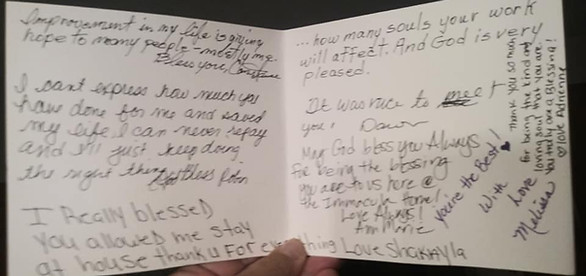 Improvement in my life is giving
hope to many people - mostly me.
Bless you,
I can't express how much you
have done for me and saved
my life I can never repay
and I'll just keep doing
the right thing God Bless
I Really blessed
You allowed me stay
at house thank u For everything Love Shakayla
...how many souls your work
will affect. And God is very
pleased.
It was nice to meet
you! Dawn
May God bless you Always
for being the blessing
you are to us here @
the Immacula Home!
Love Always!
Ann Marie
You're the Best!
With
Love
Melissa
Thank you so much
for being the kind and
loving soul that you are.
You truly are a Blessing!
Love Adrienne